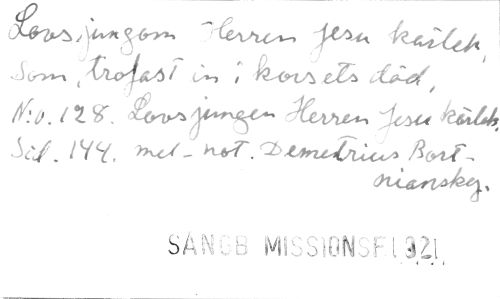 Lovsjungom Herren Jesu kärlek,
Som, trofast in i korsets död,
N:o. 128. Lovsjungen Herren Jesu kärlek,
Sid. 144. mel-not. Demetrius Bort-
niansky.
SÅNGB MISSIONSF. 1921.